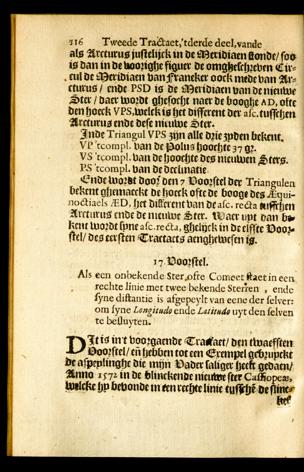 216 Tweede Tractaet, 'tderde deel, vande
als Arcturus justelijck in de Meridiaen stonde/ soo
is dan in de voorighe figuer de omgheschreven Cir-
cul de Meridiaen van Franeker oock mede van Ar-
cturus/ ende PSD is de Meridiaen van de nieuwe
Ster/ daer wordt ghesocht naer de booghe AD, ofte
den hoeck VPS, welck is het different der asc. tusschen
Arcturus ende dese nieuwe Ster.
Inde Triangul VPS zijn alle drie zyden bekent.
VP 'tcompl. van de Polus hoochte 37 gr.
VS 'tcompl. van de hoochte des nieuwen Sters.
PS 'tcompl. van de declinatie.
Ende wordt door den 7 Voorstel der Triangulen
bekent ghemaeckt de hoeck ofte de booge des Æqui-
noctiaels ÆD, het different van de asc. recta tusschen
Arcturus ende de nieuwe Ster. Waer uyt dan be-
kent wordt syne asc. recta, ghelijck in de elfste Voor-
stel/ des eersten Tractaets aenghewesen is.
17. Voorstel.
Als een onbekende Ster, ofte Comeet staet in een
rechte linie met twee bekende Sterren, ende
syne distantie is afgepeylt van eene der selver:
om syne Longitudo ende Latitudo uyt den selven
te besluyten.
Dit is in't voorgaende Tractaet/ den twaelfsten
Voorstel/ eñ hebben tot een Exempel gebruyckt
de aspeylinghe die mijn Vader saliger heeft gedaen/
Anno 1572 in de blinckende nieuwe ster Cassiopeæ,
welcke hy bevonde in een rechte linie tusschē de